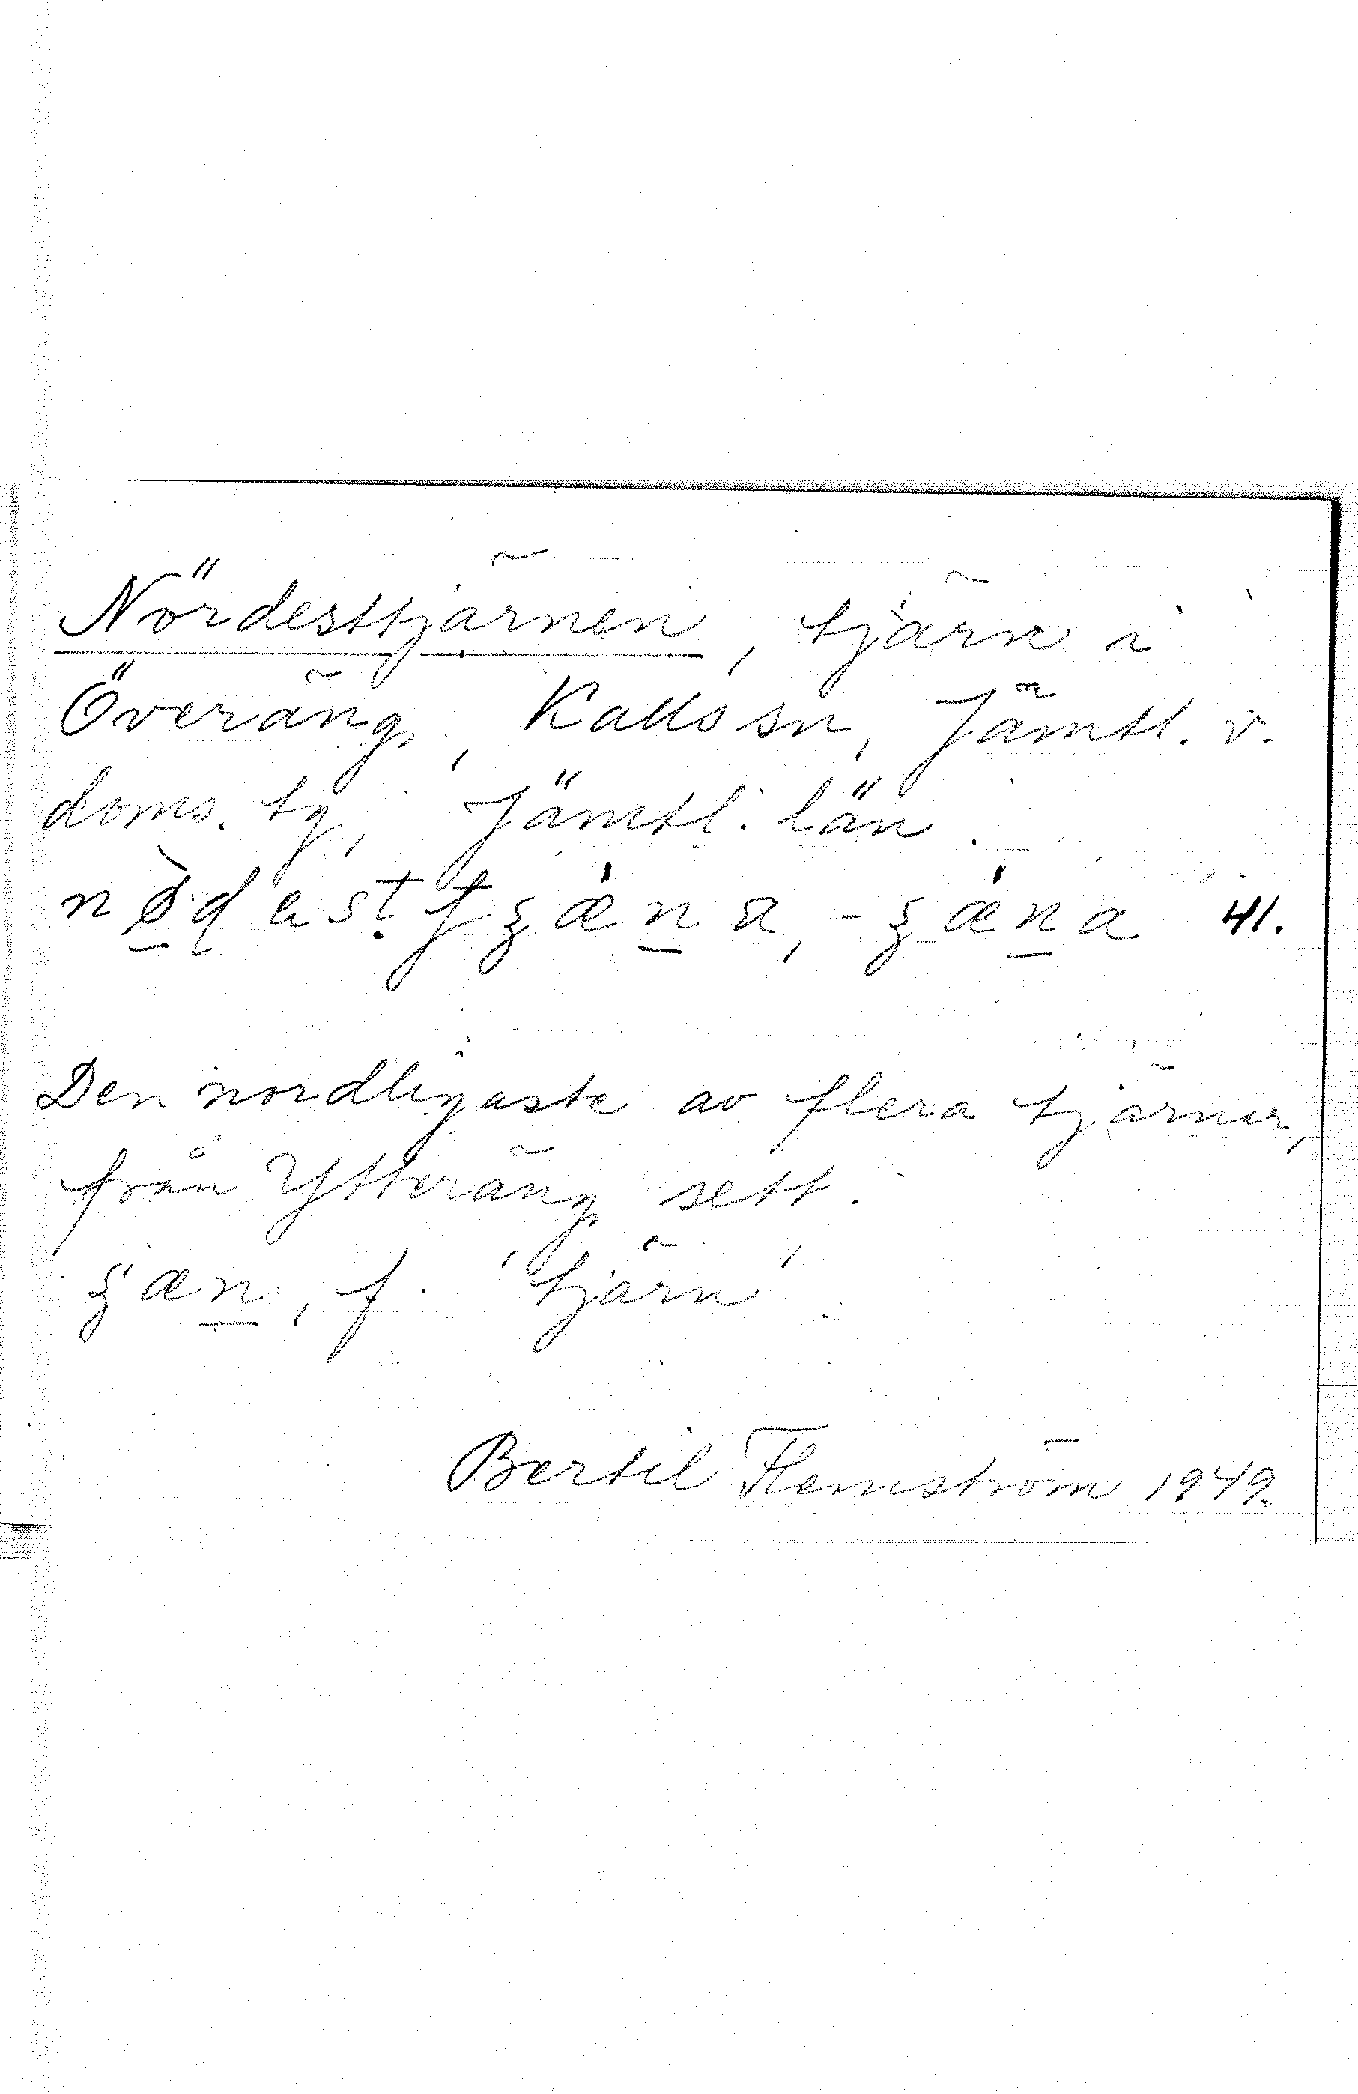 Nördesttjärnen, tjärn i
Överäng, Kalls sn, Jämtl. v.
doms. tg, Jämtl. län.
41.
Den nordligaste av flera tjärnar,
från Ytteräng sett.
f. 'tjärn'.
Bertil Flemström 1949.